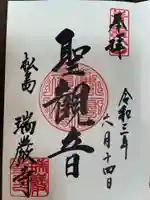 奉拝
令和三年
六月十四日
聖観音
松島
瑞巌寺